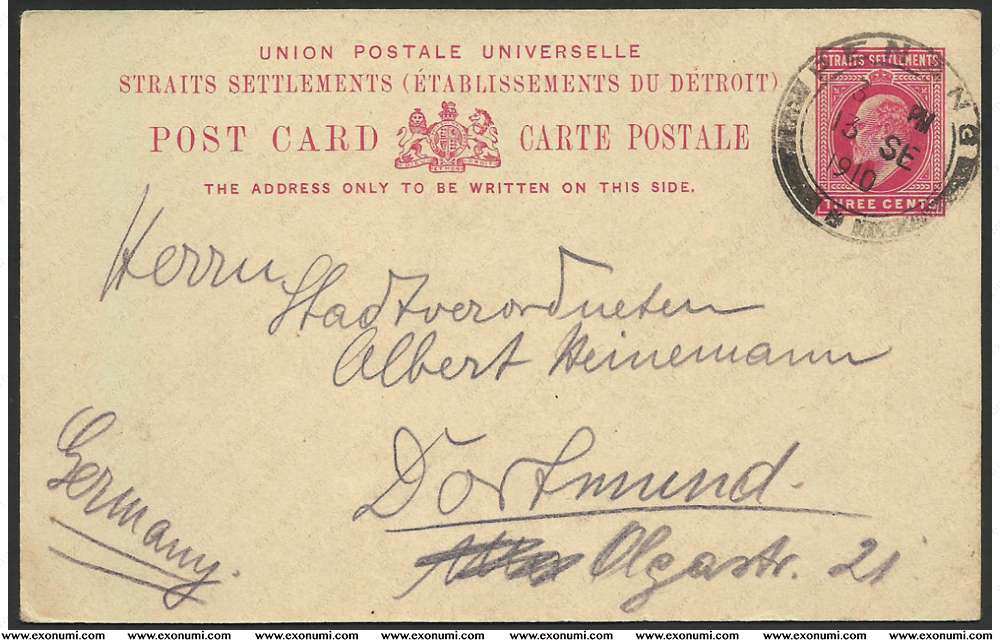 UNION POSTALE UNIVERSELLE
STRAITS SETTLEMENTS (ÉTABLISSEMENTS DU DÉTROIT)
POST CARD CARTE POSTALE
THE ADDRESS ONLY TO BE WRITTEN ON THIS SIDE.
STRAITS SETTLEMENTS
THREE CENTS
PENANG
3 PM
13 SE
1910
Herrn
Stadtverordneten
Albert Heinemann
Dortmund.
Olgastr. 21
Germany.
www.exonumi.com www.exonumi.com www.exonumi.com www.exonumi.com www.exonumi.com www.exonumi.com www.exonumi.com www.exonumi.com